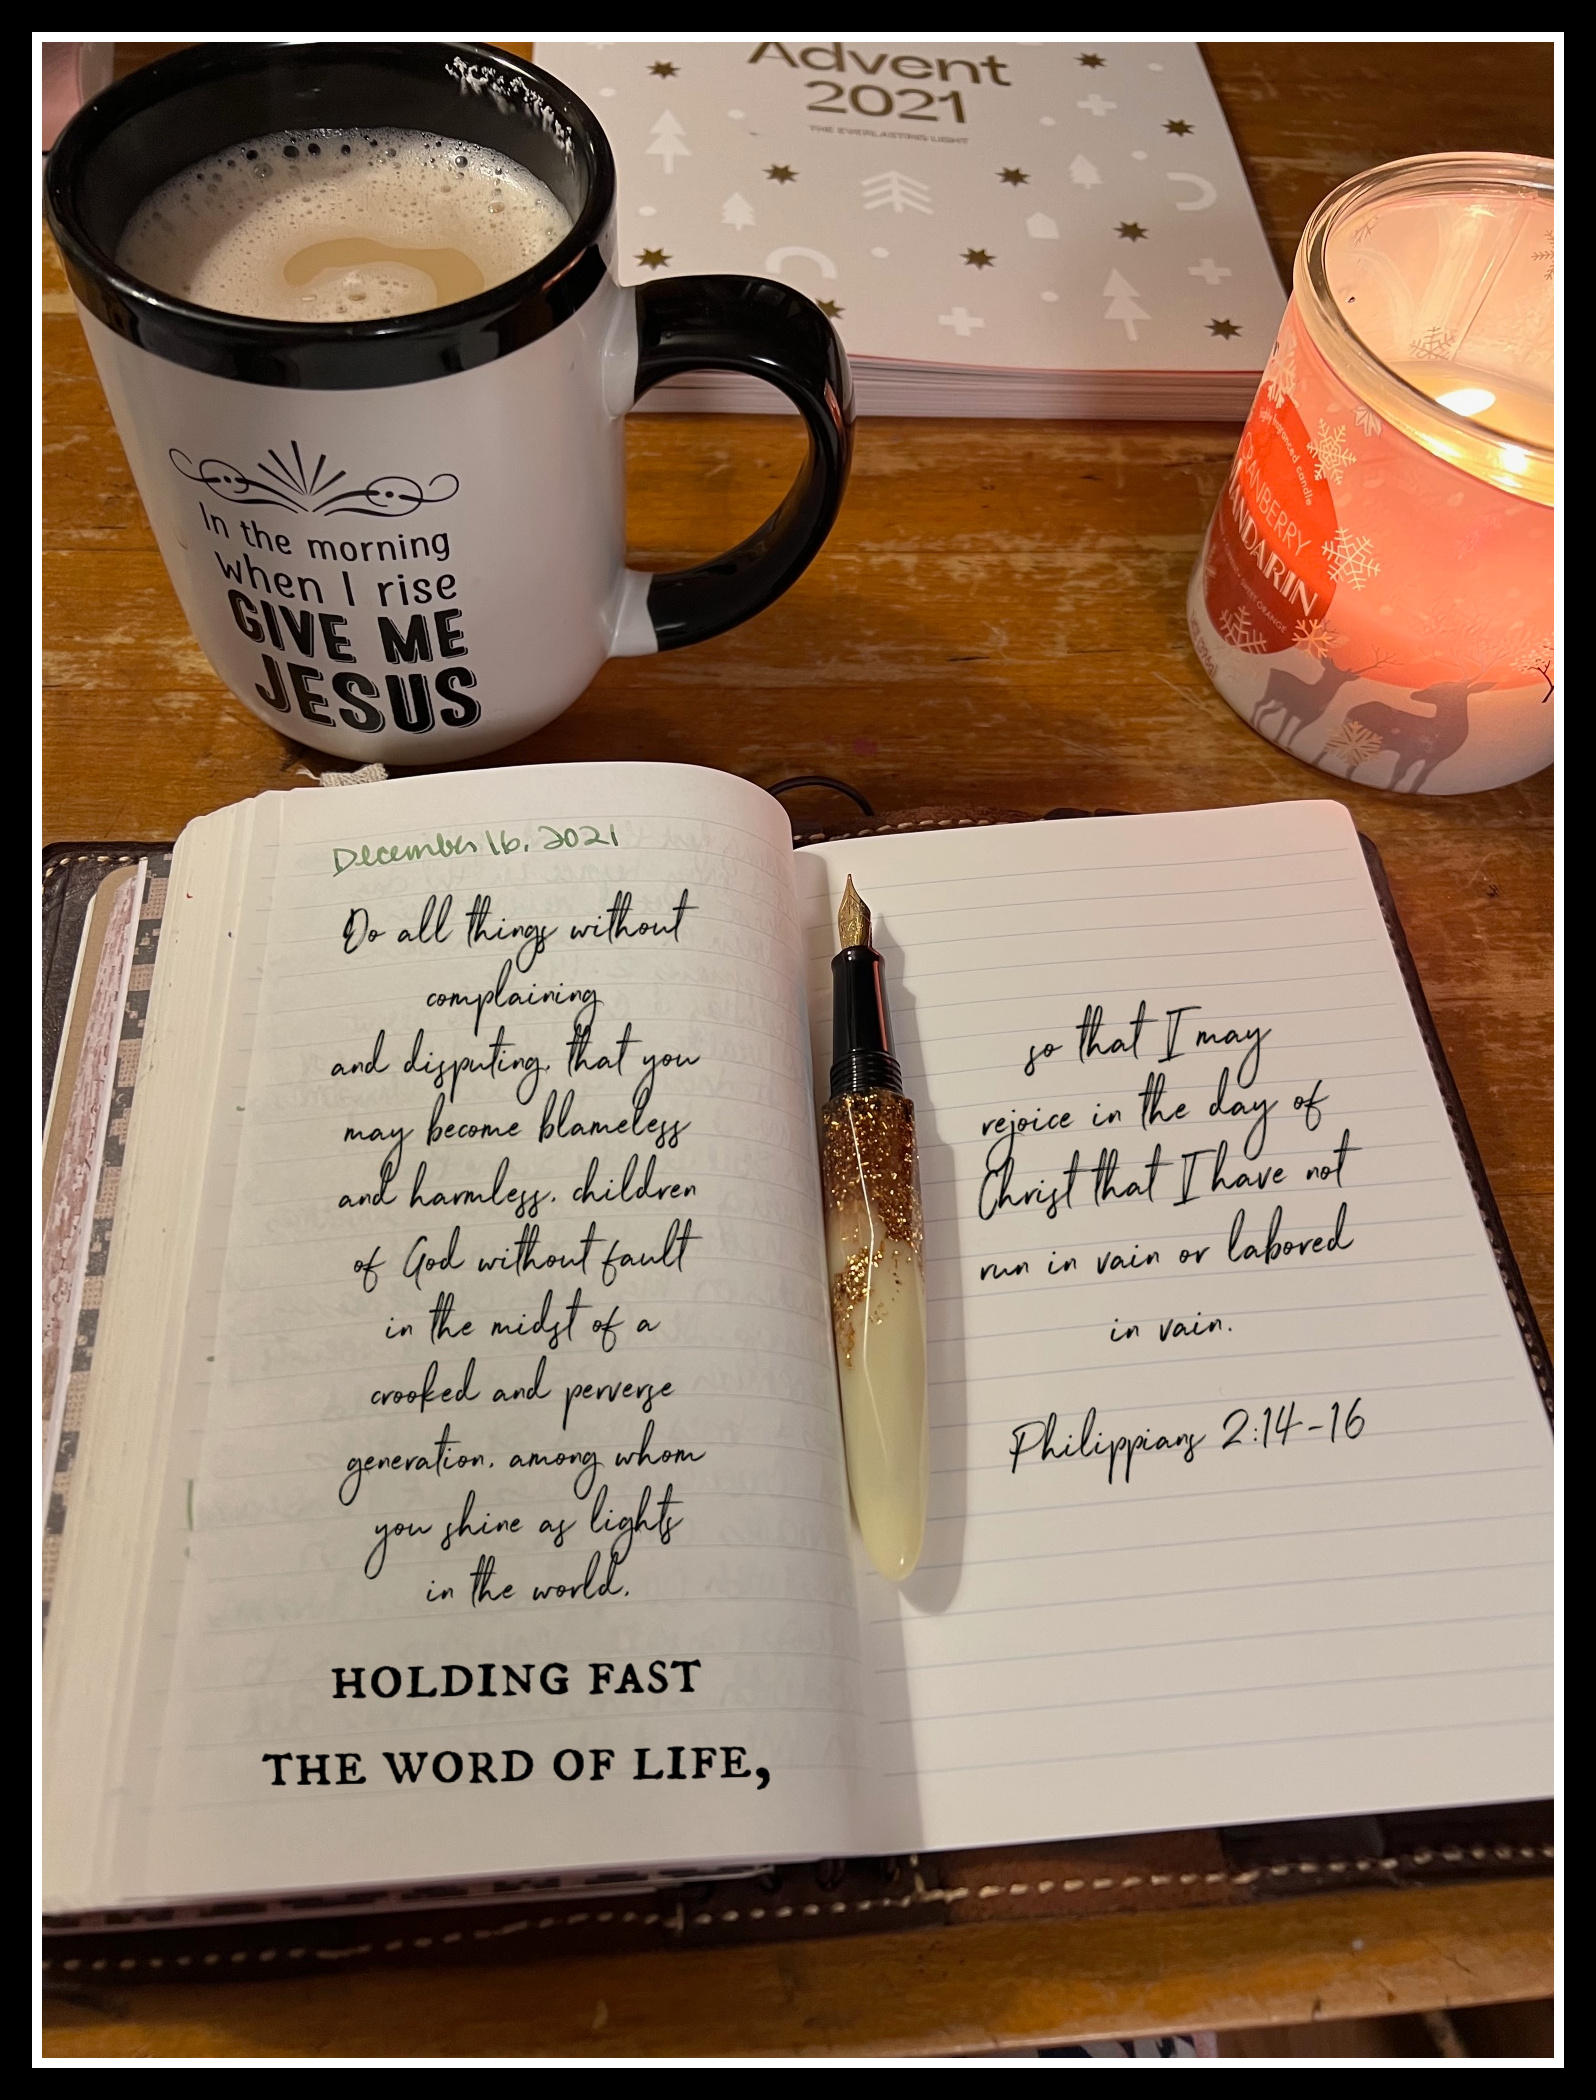 Advent
2021
THE EVERLASTING LIGHT
In the morning
when I rise
GIVE ME
JESUS
highly fragranced candle
CRANBERRY
MANDARIN
December 16, 2021
Do all things without
complaining
and disputing, that you
may become blameless
and harmless, children
of God without fault
in the midst of a
crooked and perverse
generation, among whom
you shine as lights
in the world,
HOLDING FAST
THE WORD OF LIFE,
so that I may
rejoice in the day of
Christ that I have not
run in vain or labored
in vain.
Philippians 2:14-16